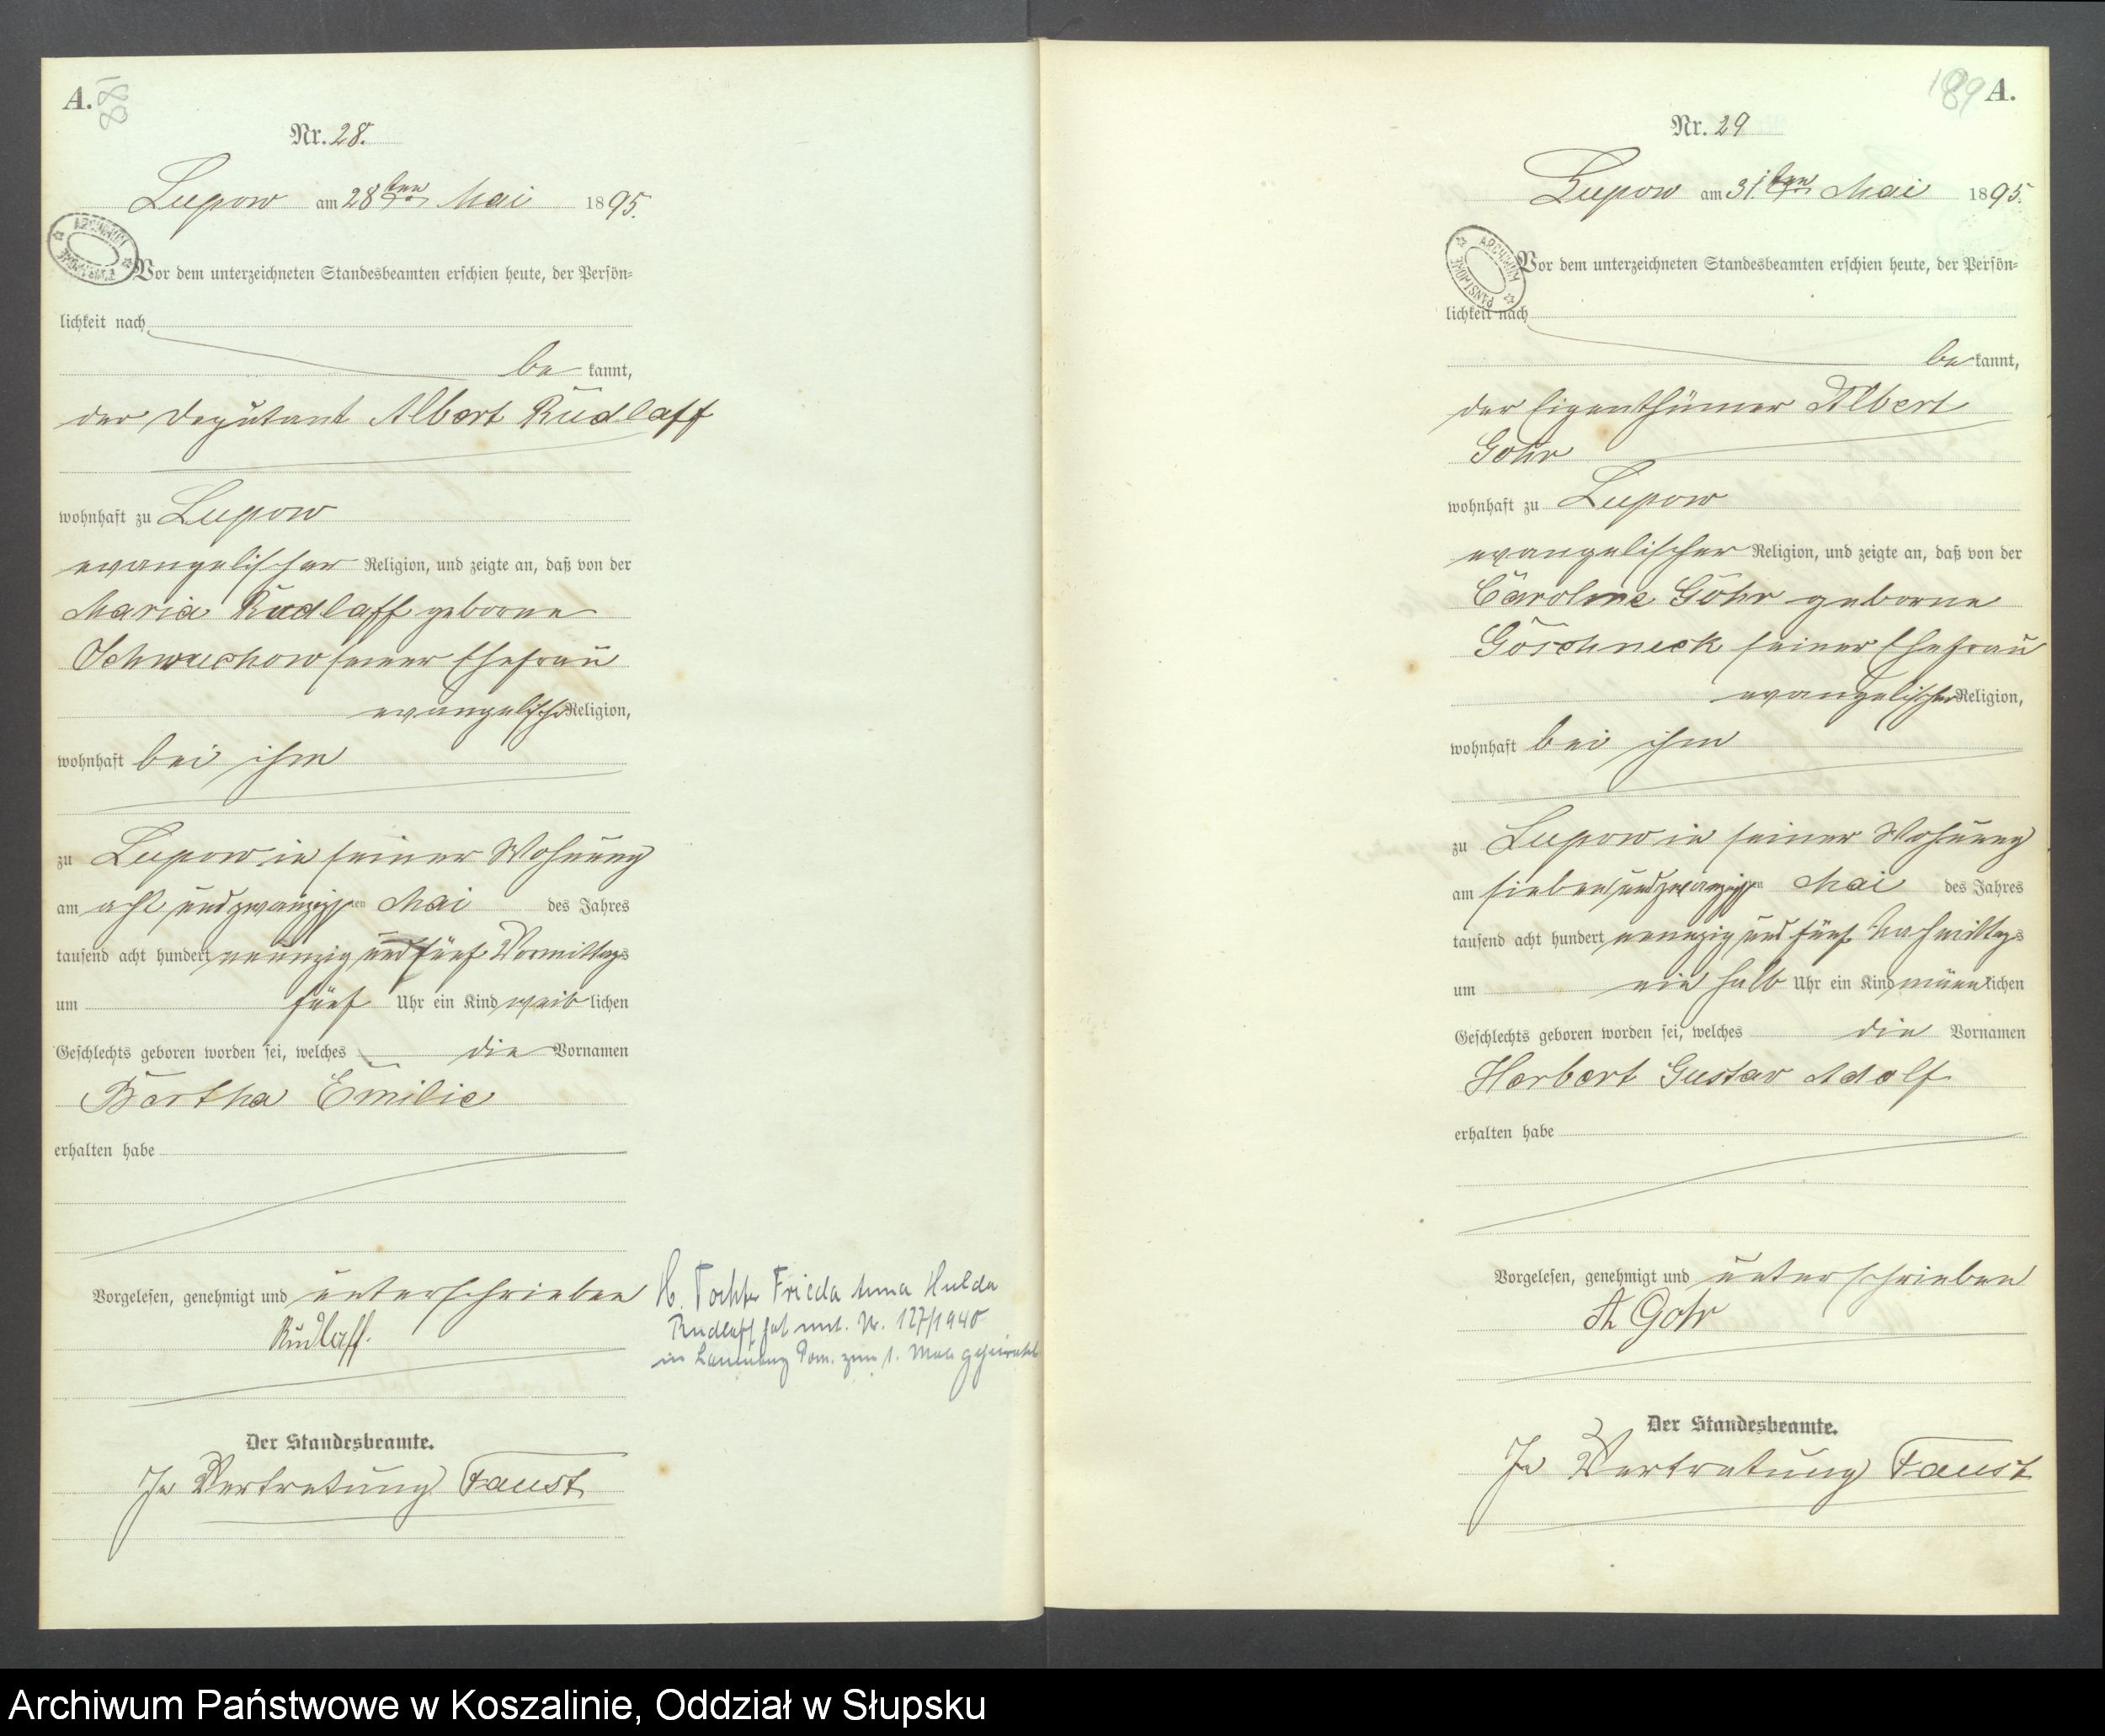 A.
188
Nr. 28.
Lupow am 28ten Mai 1895.
ARCHIWUM PAŃSTWOWE
Vor dem unterzeichneten Standesbeamten erschien heute, der Persön-
lichkeit nach
be kannt,
der Deputant Albert Rudlaff
wohnhaft zu Lupow
evangelischer Religion, und zeigte an, daß von der
Maria Rudlaff geborne
Schwuchow seiner Ehefrau
evangelischer Religion,
wohnhaft bei ihm
zu Lupow in seiner Wohnung
am acht und zwanzigsten Mai des Jahres
tausend acht hundert neunzig und fünf Vormittags
um fünf Uhr ein Kind weiblichen
Geschlechts geboren worden sei, welches die Vornamen
Bertha Emilie
erhalten habe
Vorgelesen, genehmigt und unterschrieben
Rudlaff.
Der Standesbeamte.
In Vertretung Faust
H. Tochter Frieda Anna Hulda
Rudlaff hat unt. Nr. 127/1940
in Lauenburg Pom. zum 1. Male geheiratet
189 A.
Nr. 29
Lupow am 31.ten Mai 1895.
ARCHIWUM PAŃSTWOWE
Vor dem unterzeichneten Standesbeamten erschien heute, der Persön-
lichkeit nach
be kannt,
der Eigenthümer Albert
Gohr
wohnhaft zu Lupow
evangelischer Religion, und zeigte an, daß von der
Caroline Gohr geborne
Göschneck seiner Ehefrau
evangelischer Religion,
wohnhaft bei ihm
zu Lupow in seiner Wohnung
am sieben und zwanzigsten Mai des Jahres
tausend acht hundert neunzig und fünf Nachmittags
um ein halb Uhr ein Kind männlichen
Geschlechts geboren worden sei, welches die Vornamen
Herbert Gustav Adolf
erhalten habe
Vorgelesen, genehmigt und unterschrieben
A Gohr
Der Standesbeamte.
In Vertretung Faust
Archiwum Państwowe w Koszalinie, Oddział w Słupsku